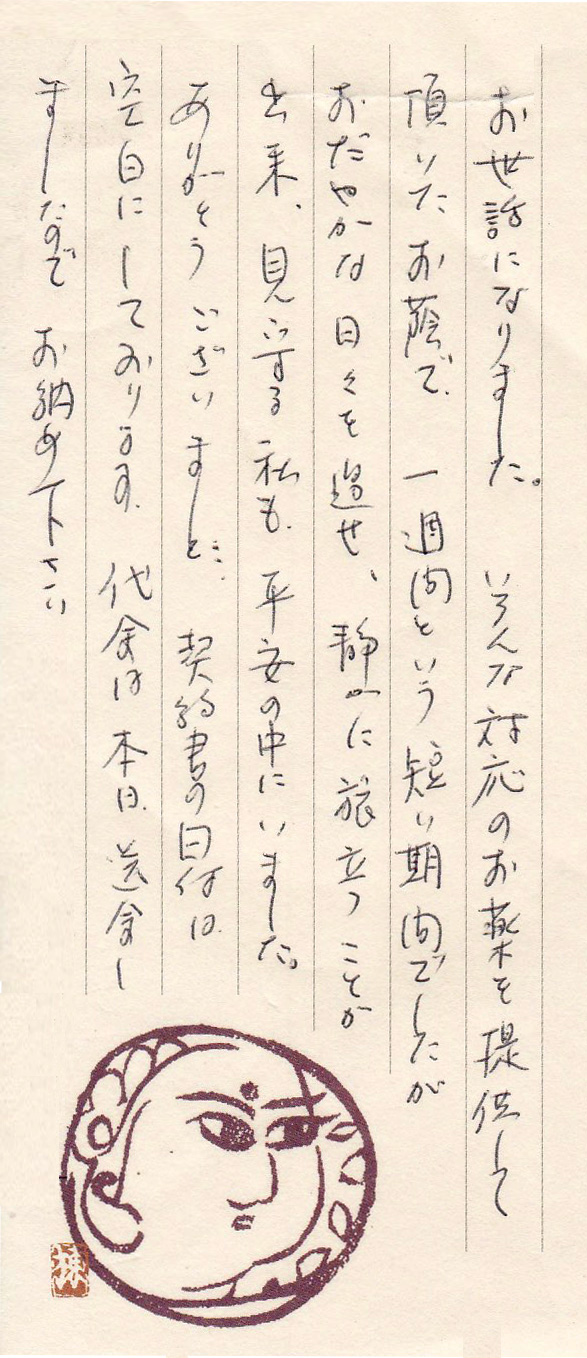 お世話になりました。 いろんな対応のお薬を提供して
頂いたお蔭で、一週間という短い期間でしたが
おだやかな日々を過せ、静かに旅立つことが
出来、見守する私も、平安の中にいました。
ありがとうございました… 契約書の日付は
空白にしております。代金は本日、送金し
ましたので お納め下さい